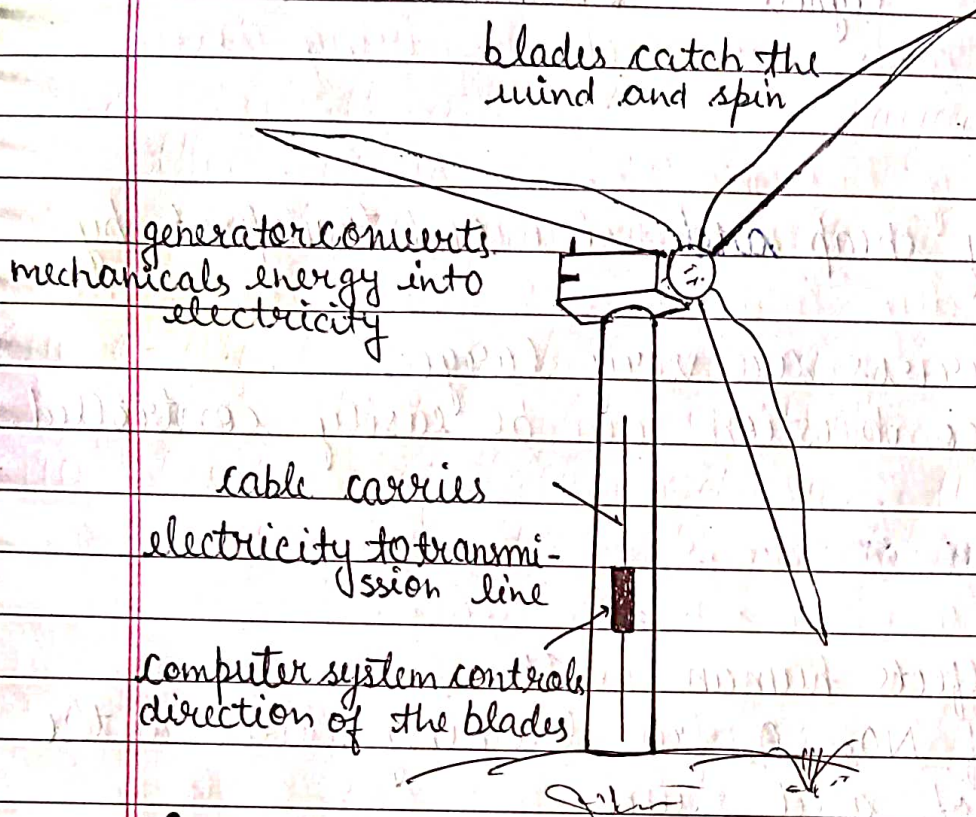 blades catch the
wind and spin
generator converts
mechanicals energy into
electricity
cable carries
electricity to transmi-
ssion line
computer system controls
direction of the blades